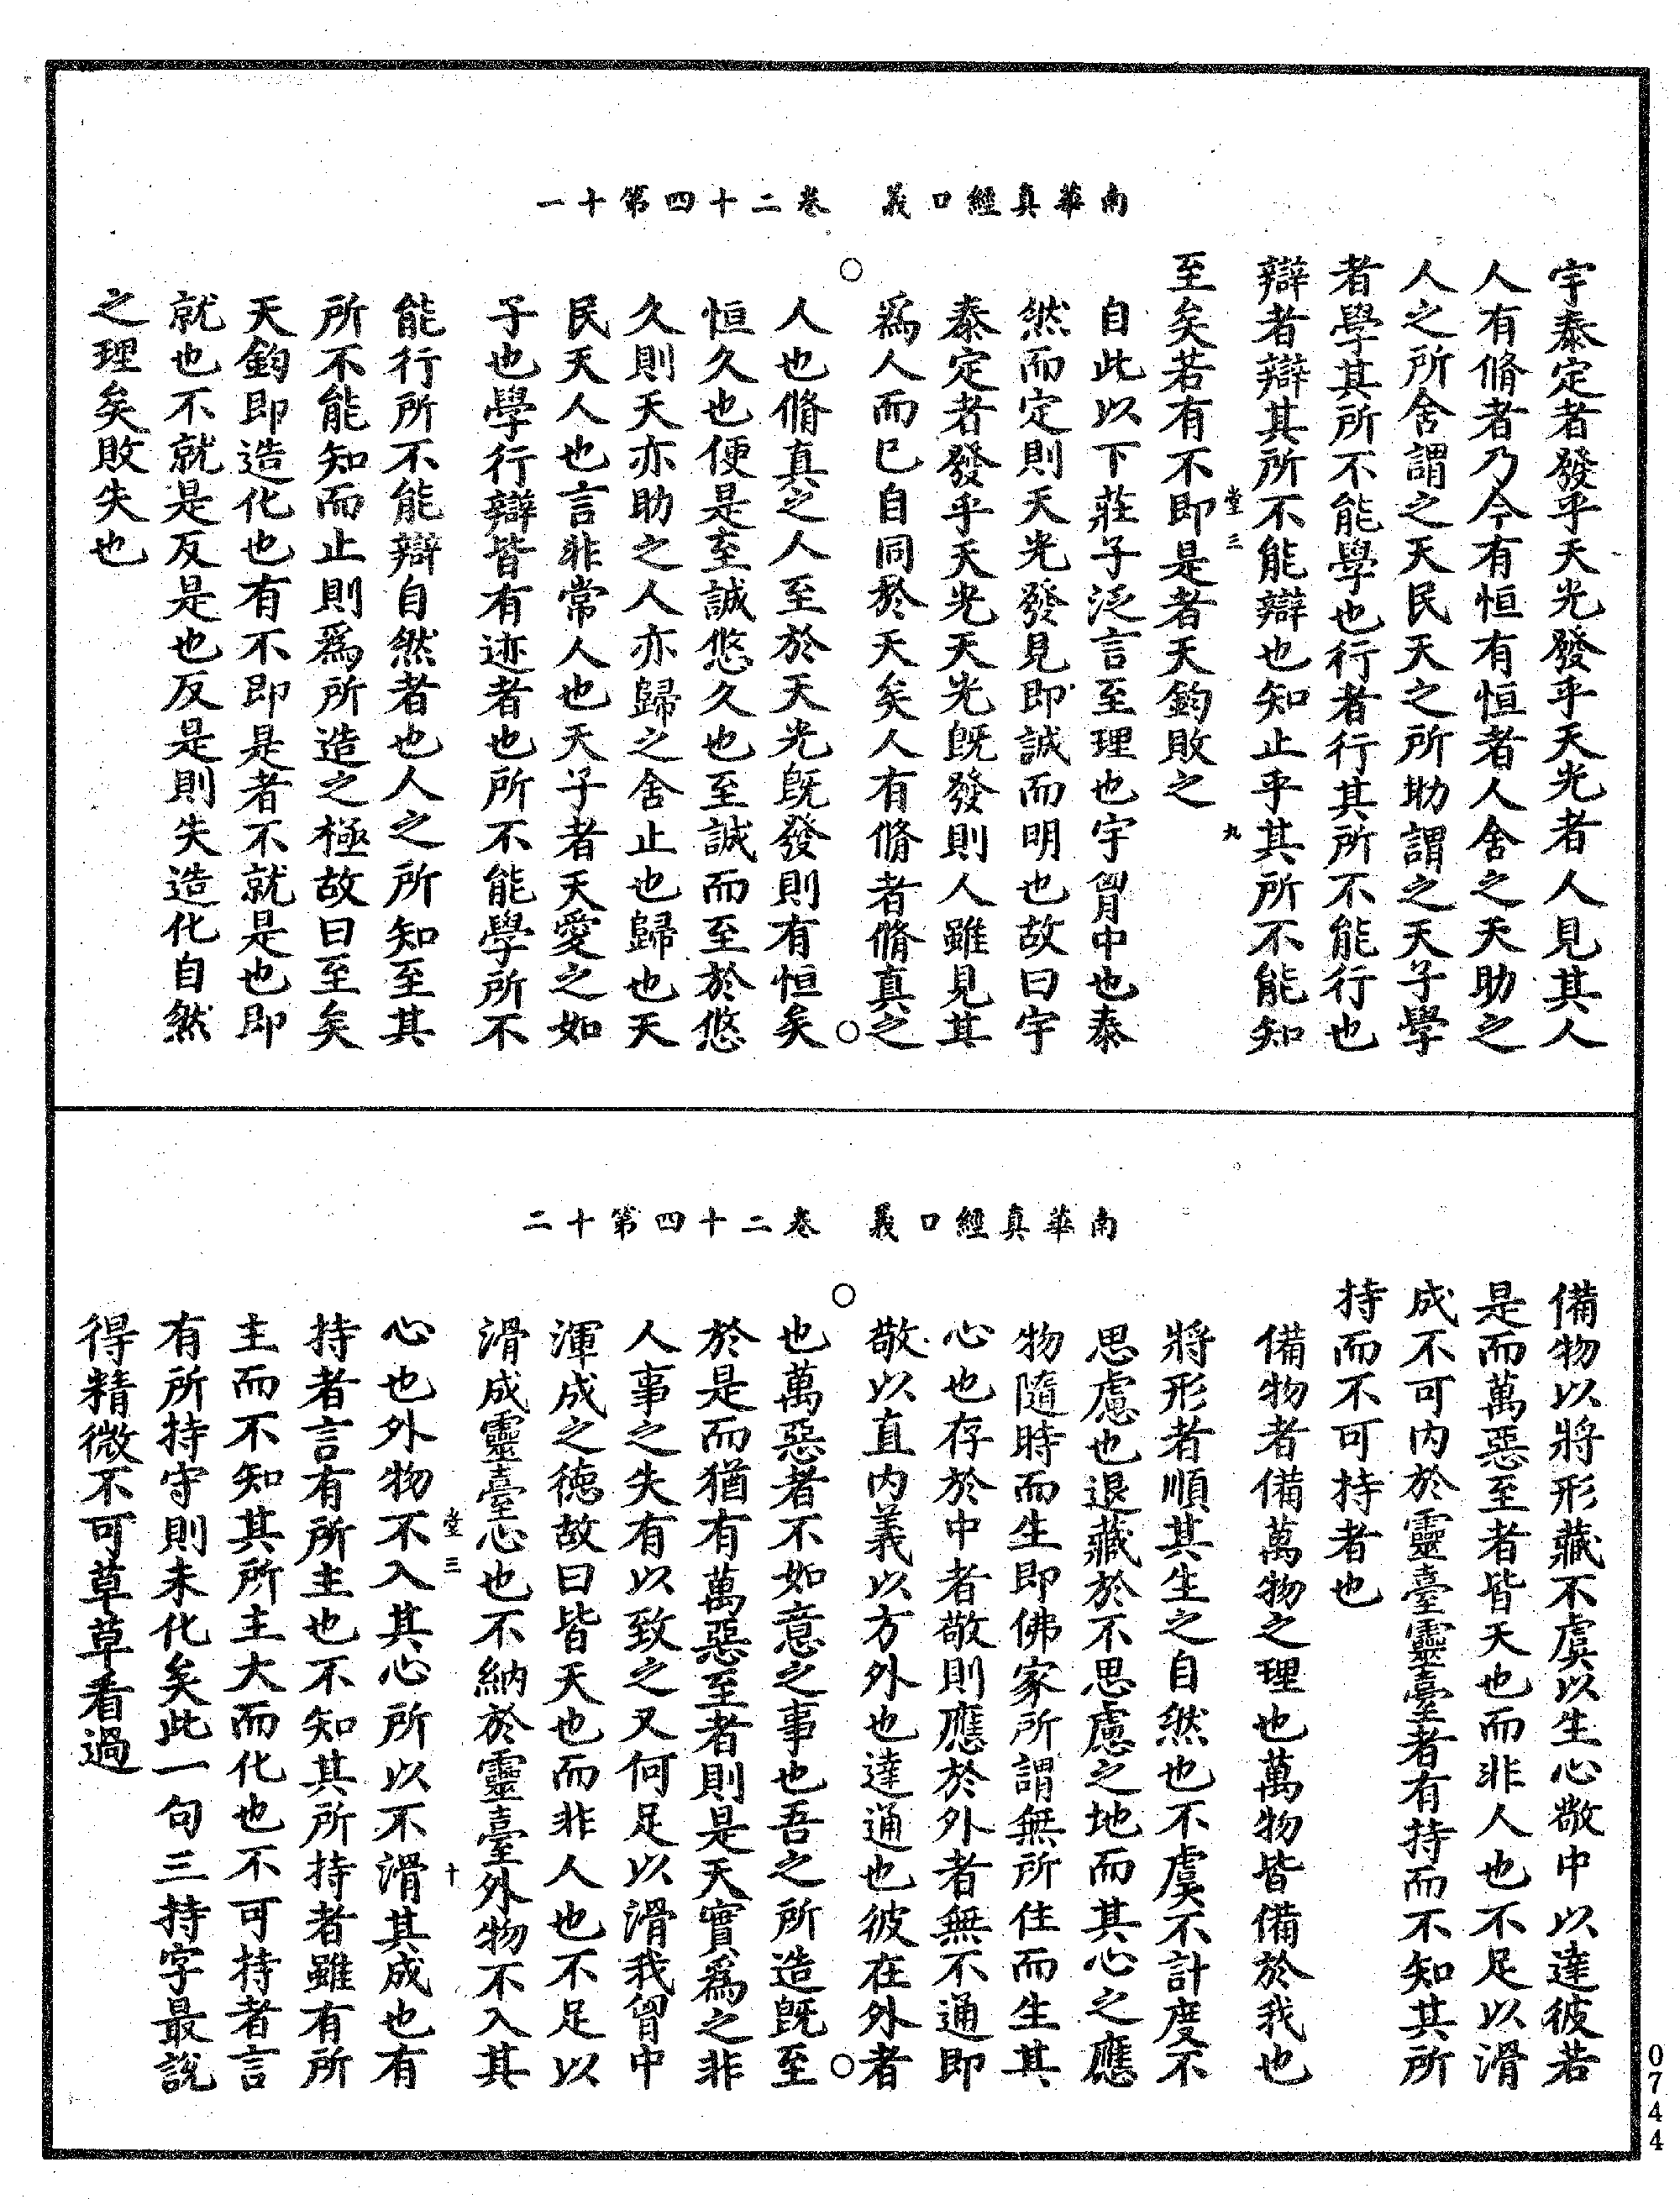 南華真經口義　卷二十四第十一
宇泰定者發乎天光發乎天光者人見其人
人有脩者乃今有恒有恒者人舍之天助之
人之所舍謂之天民天之所助謂之天子學
者學其所不能學也行者行其所不能行也
辯者辯其所不能辯也知止乎其所不能知
至矣若有不即是者天鈞敗之
堂三　九
自此以下莊子泛言至理也宇胷中也泰
然而定則天光發見即誠而明也故曰宇
泰定者發乎天光天光既發則人雖見其
爲人而已自同於天矣人有脩者脩真之
人也脩真之人至於天光既發則有恒矣
恒久也便是至誠悠久也至誠而至於悠
久則天亦助之人亦歸之舍止也歸也天
民天人也言非常人也天子者天愛之如
子也學行辯皆有迹者也所不能學所不
能行所不能辯自然者也人之所知至其
所不能知而止則爲所造之極故曰至矣
天鈞即造化也有不即是者不就是也即
就也不就是反是也反是則失造化自然
之理矣敗失也
南華真經口義　卷二十四第十二
備物以將形藏不虞以生心敬中以達彼若
是而萬惡至者皆天也而非人也不足以滑
成不可内於靈臺靈臺者有持而不知其所
持而不可持者也
備物者備萬物之理也萬物皆備於我也
將形者順其生之自然也不虞不計度不
思慮也退藏於不思慮之地而其心之應
物隨時而生即佛家所謂無所住而生其
心也存於中者敬則應於外者無不通即
敬以直内義以方外也達通也彼在外者
也萬惡者不如意之事也吾之所造既至
於是而猶有萬惡至者則是天實爲之非
人事之失有以致之又何足以滑我胷中
渾成之德故曰皆天也而非人也不足以
滑成靈臺心也不納於靈臺外物不入其
堂三　十
心也外物不入其心所以不滑其成也有
持者言有所主也不知其所持者雖有所
主而不知其所主大而化也不可持者言
有所持守則未化矣此一句三持字最說
得精微不可草草看過
0744